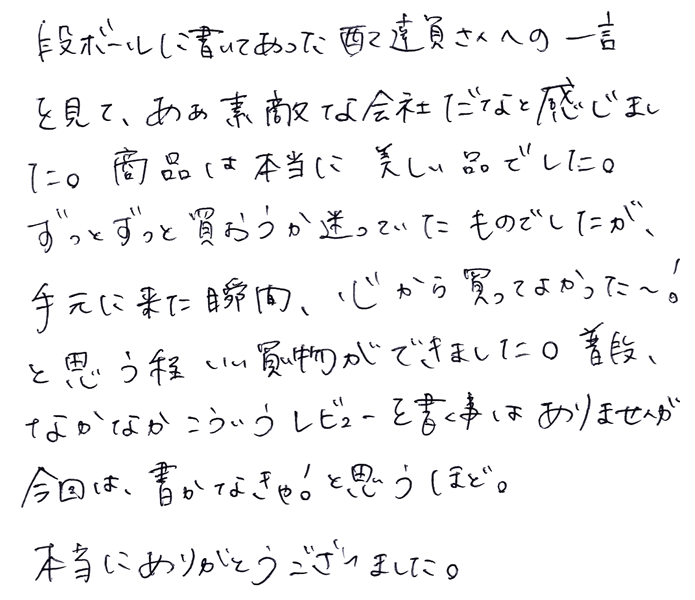 段ボールに書いてあった配達員さんへの一言
を見て、あぁ素敵な会社だなと感じまし
た。商品は本当に美しい品でした。
ずっとずっと買おうか迷っていたものでしたが、
手元に来た瞬間、心から買ってよかった〜!
と思う程いい買い物ができました。普段、
なかなかこういうレビューを書く事はありませんが
今回は、書かなきゃ!と思うほど。
本当にありがとうございました。